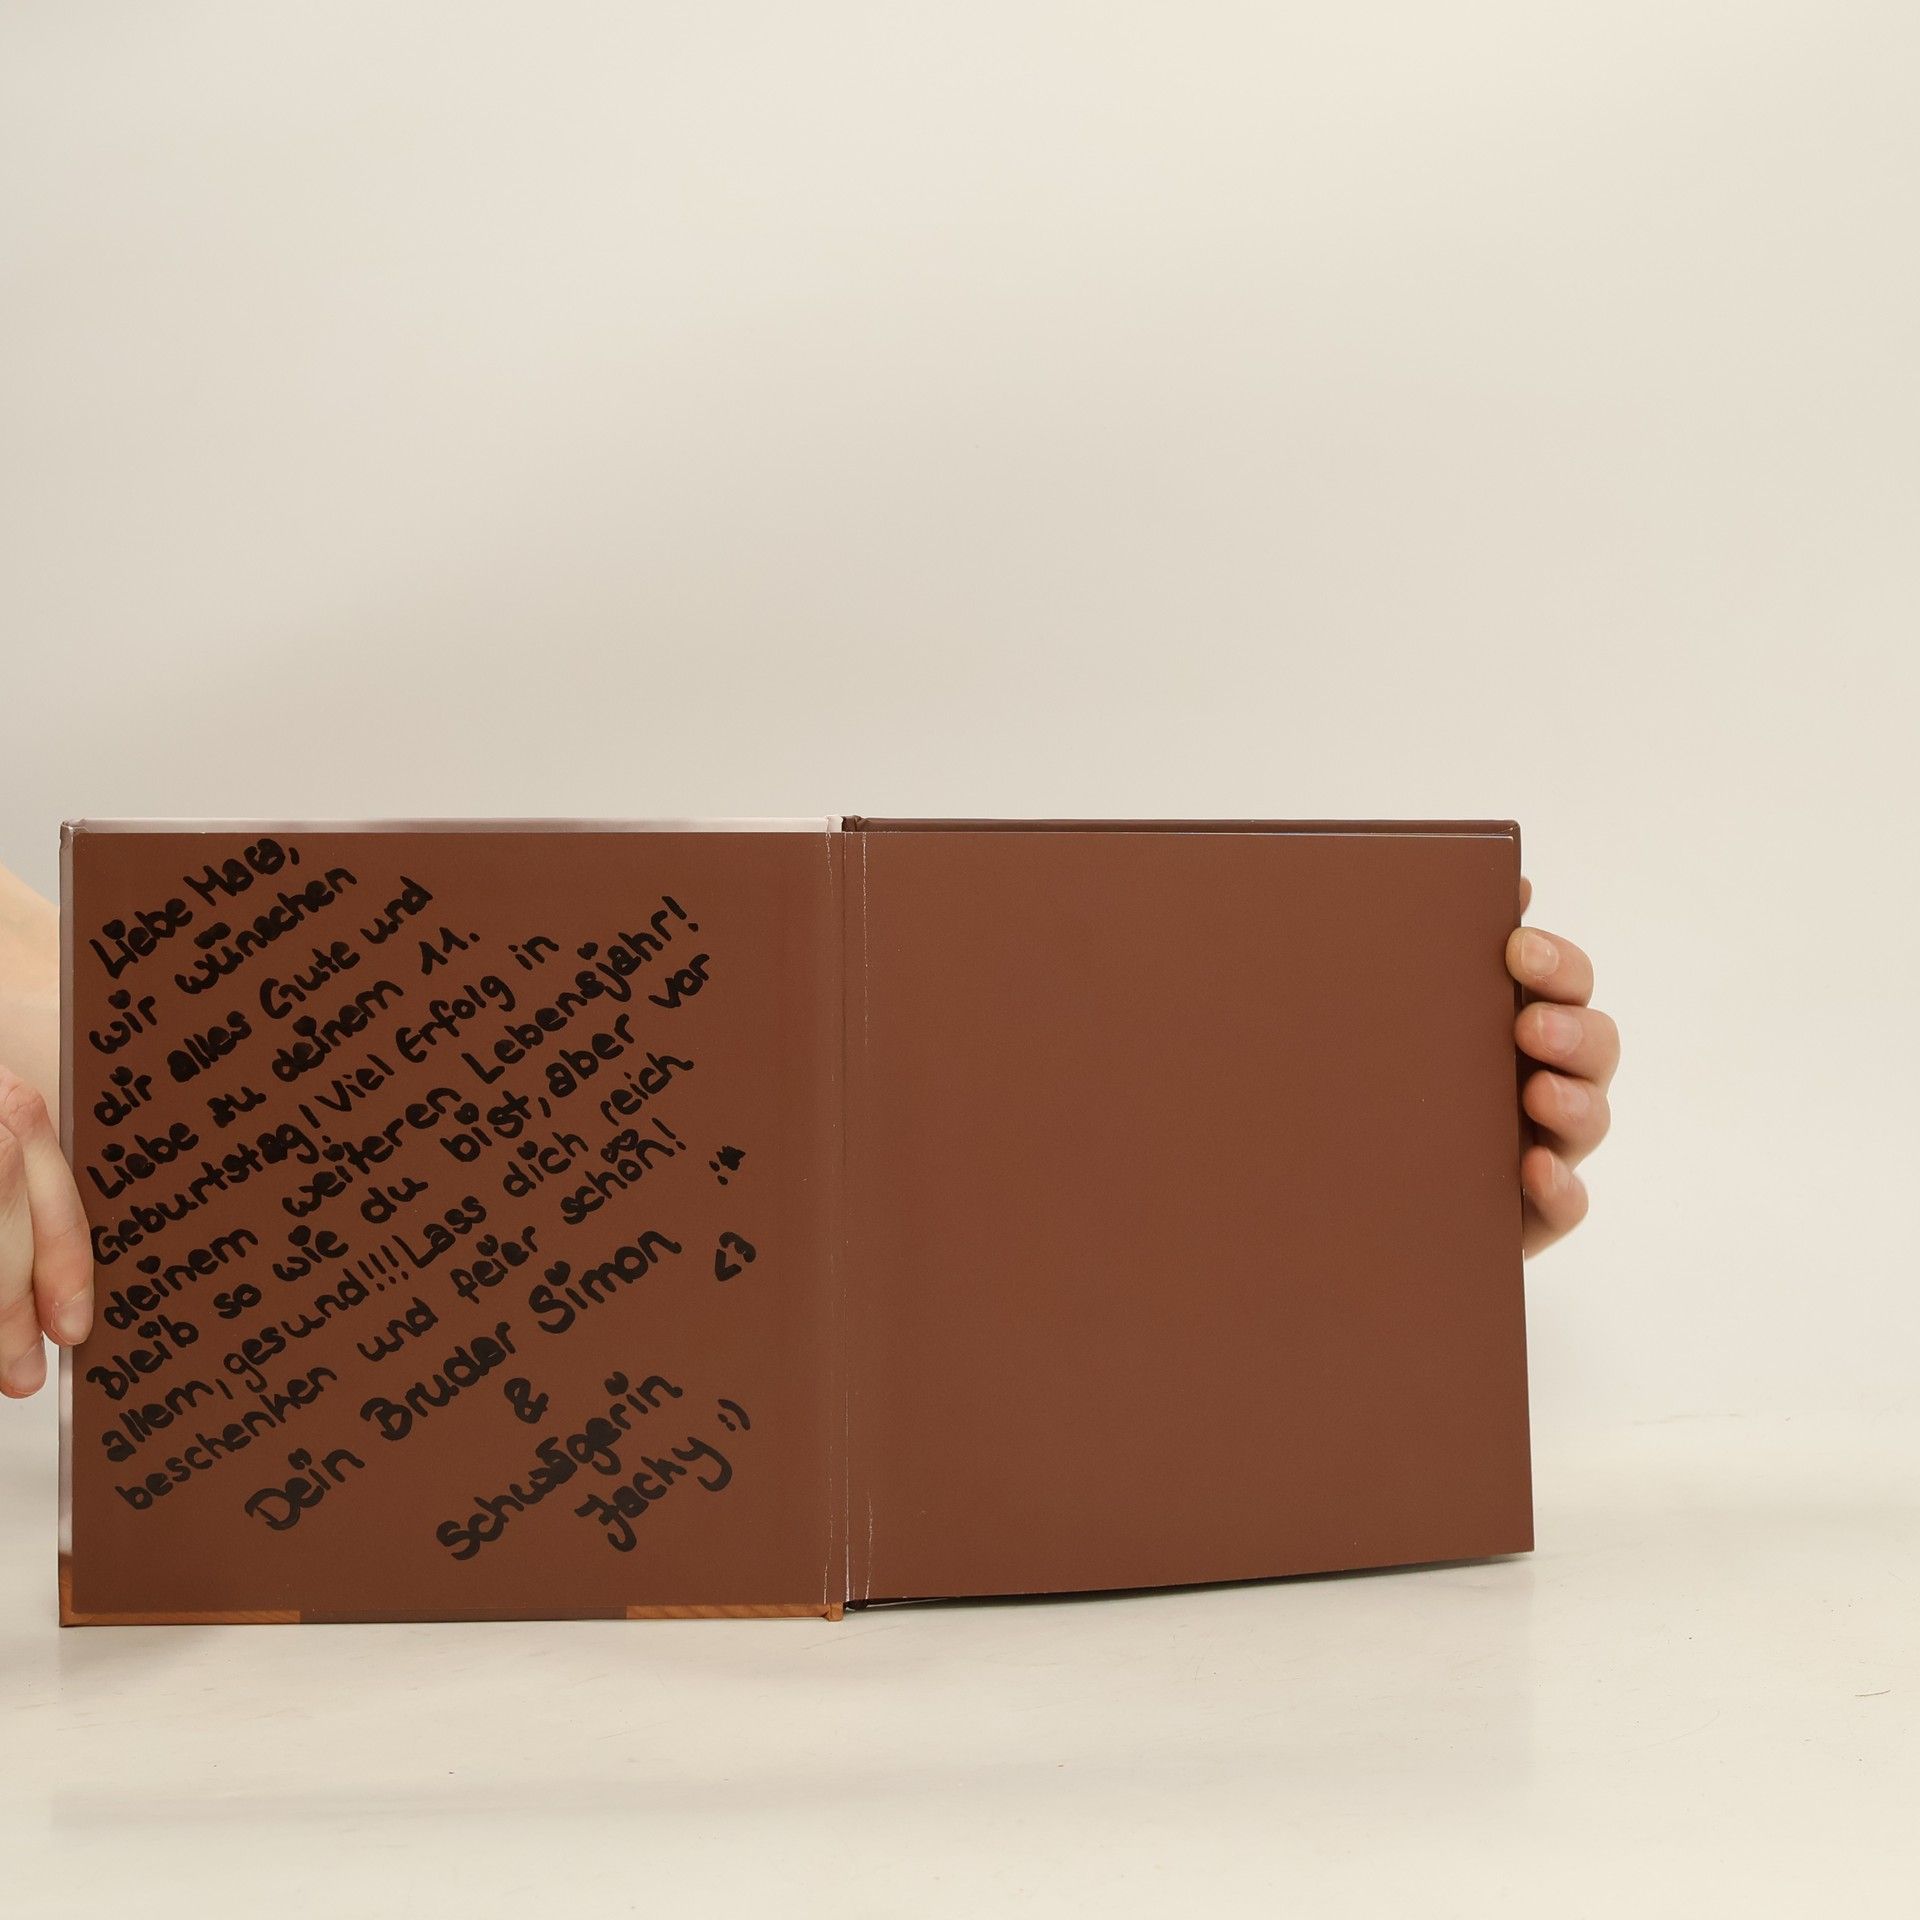 Liebe
wir wünschen
dir alles Gute und
Liebe zu deinem 11.
Geburtstag! Viel Erfolg in
deinem weiteren Lebensjahr!
Bleib so wie du bist, aber vor
allem, gesund!!! Lass dich reich
beschenken und feier schön! :*
Dein Bruder Simon <3
&
Schwägerin
Jacky :)